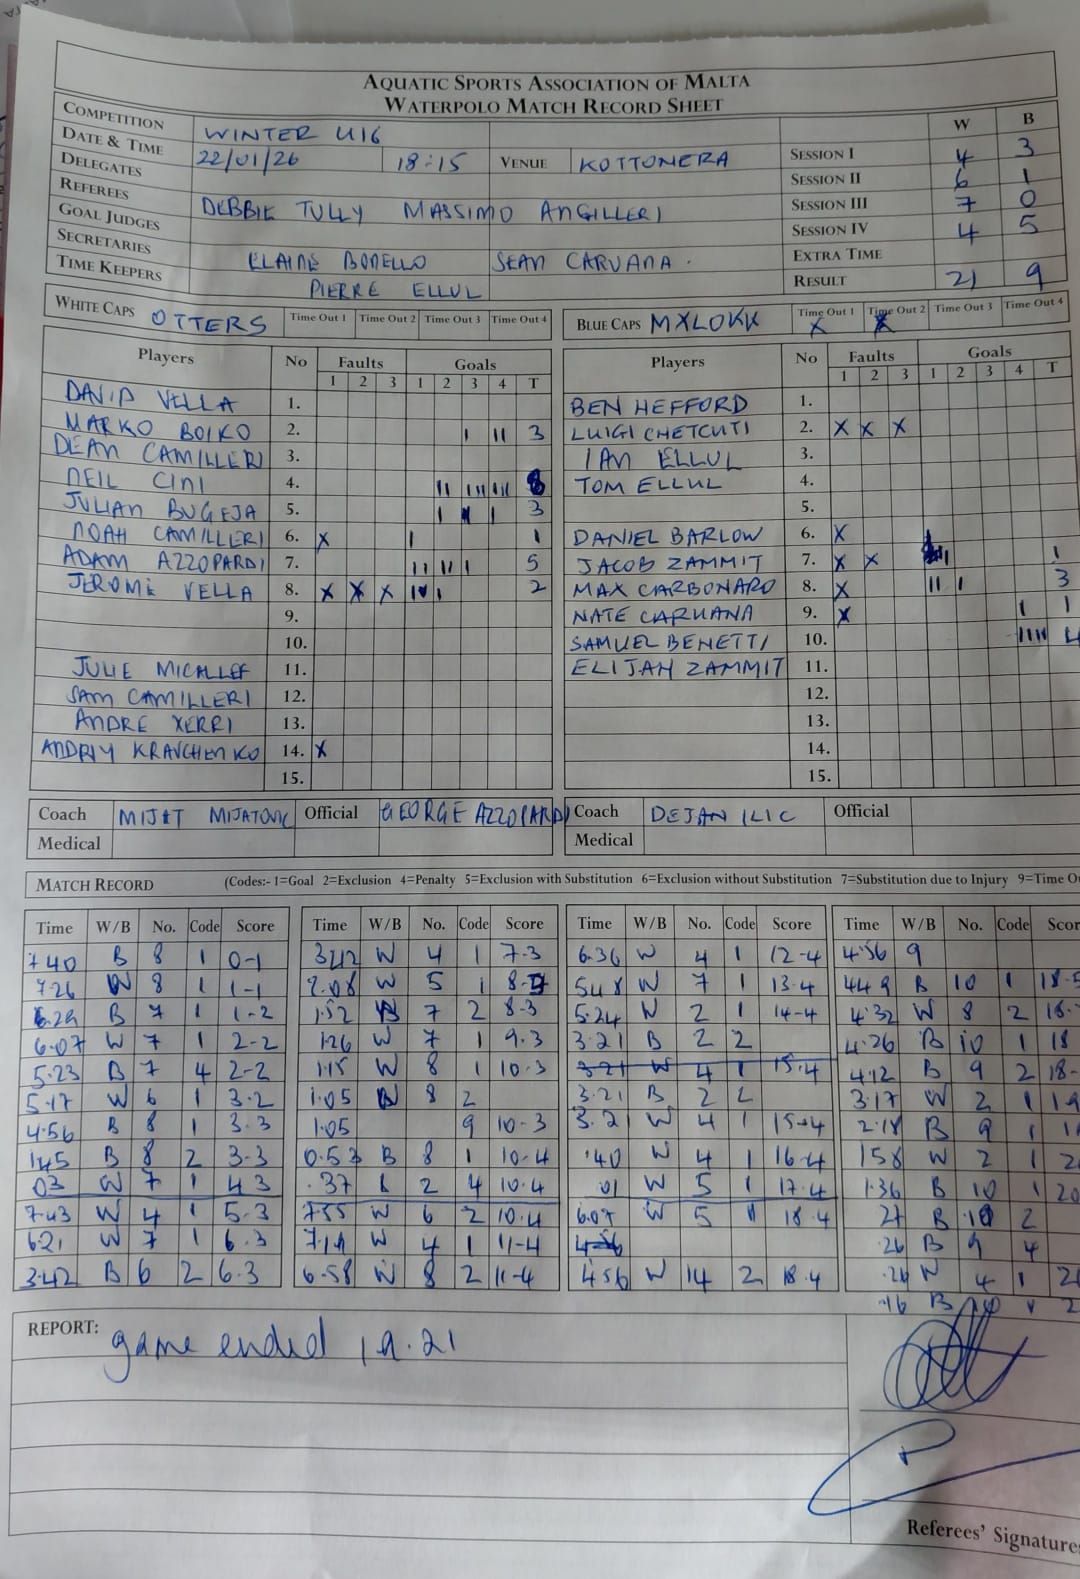 AQUATIC SPORTS ASSOCIATION OF MALTA
WATERPOLO MATCH RECORD SHEET
W B
COMPETITION WINTER U16
DATE & TIME 22/01/26 18:15 VENUE KOTTONERA
DELEGATES
REFEREES DEBBIE TULLY MASSIMO ANGILLERI
GOAL JUDGES
SECRETARIES ELAINE BONELLO SEAN CARUANA.
TIME KEEPERS PIERRE ELLUL
SESSION I 4 3
SESSION II 6 1
SESSION III 7 0
SESSION IV 4 5
EXTRA TIME
RESULT 21 9
WHITE CAPS OTTERS Time Out 1 Time Out 2 Time Out 3 Time Out 4
BLUE CAPS MXLOKK Time Out 1 X Time Out 2 X Time Out 3 Time Out 4
Players No Faults Goals
1 2 3 1 2 3 4 T
DAVID VELLA 1.
MARKO BOIKO 2. I II 3
DEAN CAMILLERI 3.
NEIL CINI 4. II IIII IIII 8
JULIAN BUGEJA 5. I I I 3
NOAH CAMILLERI 6. X I 1
ADAM AZZOPARDI 7. II II I 5
JEROME VELLA 8. X X X I I 2
9.
10.
JULIE MICALLEF 11.
SAM CAMILLERI 12.
ANDRE XERRI 13.
ANDRIY KRAVCHENKO 14. X
15.
Players No Faults Goals
1 2 3 1 2 3 4 T
BEN HEFFORD 1.
LUIGI CHETCUTI 2. X X X
IAN ELLUL 3.
TOM ELLUL 4.
5.
DANIEL BARLOW 6. X
JACOB ZAMMIT 7. X X I 1
MAX CARBONARO 8. X II I 3
NATE CARUANA 9. X I 1
SAMUEL BENETTI 10. IIII 4
ELIJAH ZAMMIT 11.
12.
13.
14.
15.
Coach MIJAT MIJATOVIC Official GEORGE AZZOPARDI
Medical
Coach DEJAN ILIC Official
Medical
MATCH RECORD (Codes:- 1=Goal 2=Exclusion 4=Penalty 5=Exclusion with Substitution 6=Exclusion without Substitution 7=Substitution due to Injury 9=Time O
Time W/B No. Code Score
7.40 B 8 1 0-1
7.26 W 8 1 1-1
6.29 B 7 1 1-2
6.07 W 7 1 2-2
5.23 B 7 4 2-2
5.17 W 6 1 3.2
4.56 B 8 1 3.3
1.45 B 8 2 3-3
.03 W 7 1 4.3
7.43 W 4 1 5.3
6.21 W 7 1 6.3
3.42 B 6 2 6.3
Time W/B No. Code Score
3.42 W 4 1 7.3
2.08 W 5 1 8.3
1.52 7 2 8.3
1.26 W 7 1 9.3
1.15 W 8 1 10.3
1.05 W 8 2
1.05 9 10-3
0.53 B 8 1 10.4
.37 2 4 10.4
7.55 W 6 2 10.4
7.19 W 4 1 11-4
6.58 W 8 2 11-4
Time W/B No. Code Score
6.36 W 4 1 12-4
5.48 W 7 1 13.4
5.24 W 2 1 14-4
3.21 B 2 2
3.21 W 4 1 15.4
3.21 B 2 2
3.21 W 4 1 15-4
.40 W 4 1 16-4
.01 W 5 1 17.4
6.07 W 5 1 18.4
4.56
4.56 W 14 2 18.4
Time W/B No. Code Scor
4.56 9
4.49 B 10 1 18.5
4.32 W 8 2 18.
4.26 B 10 1 18
4.12 B 9 2 18-
3.17 W 2 1 19
2.18 B 9 1
1.58 W 2 1 2
1.36 B 10 1 20
27 B 10 2
.26 B 9 4
.26 W 4 1 2
.16 B 10 1 2
REPORT: game ended 19.21
Referees' Signature